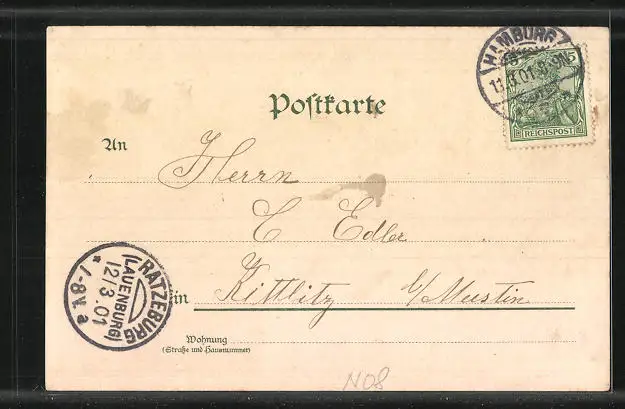 HAMBURG
11.3.01.8-9N.
5
REICHSPOST
Postkarte
An
Herrn
C Edler
in Kittlitz b/Mustin
Wohnung
(Straße und Hausnummer)
RATZEBURG
(LAUENBURG)
12/3.01
* 7-8V. a
N08